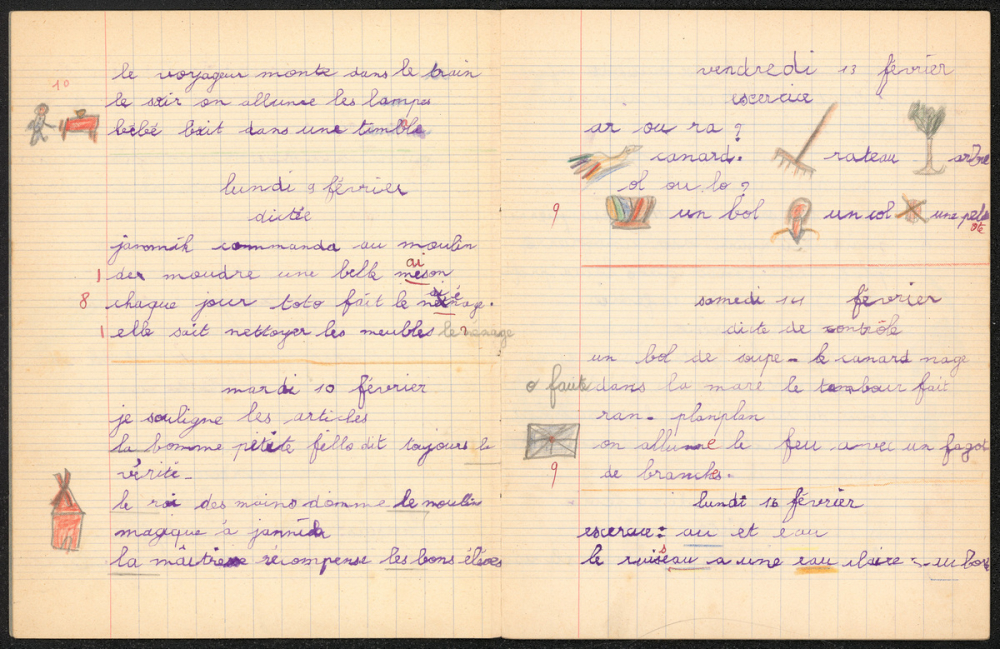 10
le voyageur monte dans le train
le soir on allume les lampes
bébé boit dans une timbale
lundi 9 février
dictée
jannik commanda au moulin
1 de moudre une belle meson
ai
8 chaque jour toto fait le nage.
1 elle sait nettoyer les meubles le
mardi 10 février
je souligne les articles
la bonne petite fille dit toujours la
vérité_
le roi des nains donne le moulin
magique à jannik
la maîtresse récompense les bons élèves
vendredi 13 février
escercice
ar ou ra ?
canard. rateau arbre
ol ou lo ?
9 un bol un col une pelote
samedi 14 février
dicte de contrôle
un bol de soupe - le canard nage
0 faute dans la mare le tambour fait
ran - planplan
on allume le feu avec un fagot
9 de branches.
lundi 16 février
escercice : au et eau
le ruisseau a une eau claire : - au bord